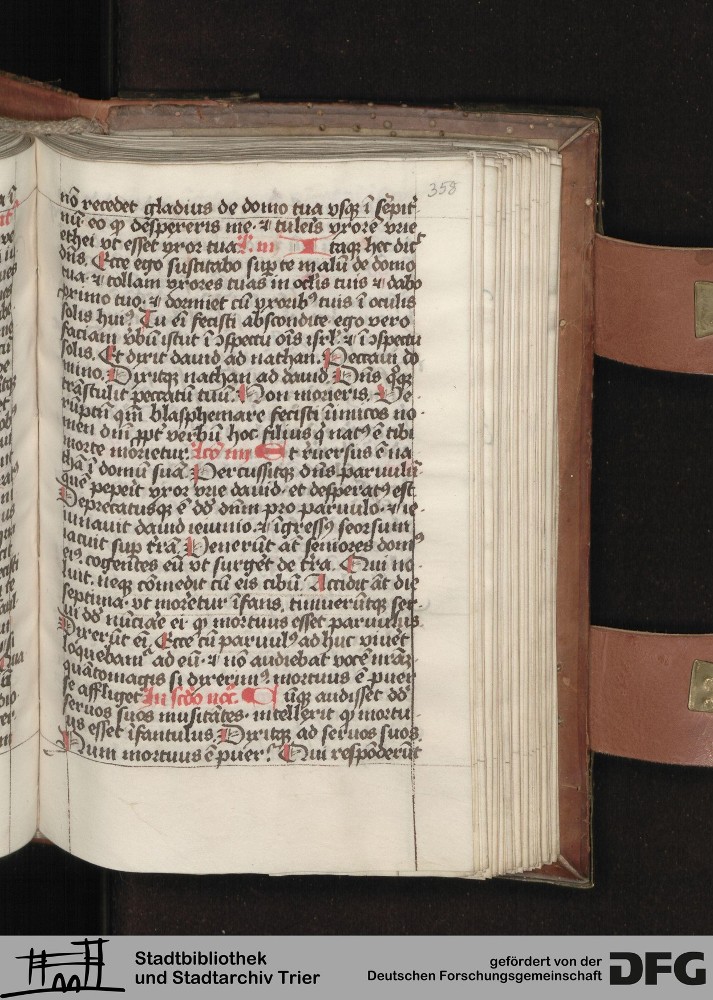 358
nō recedet gladius de domo tua vsqꝫ ī sēpit̄
nū eo ꝙ despexeris me · ⁊ tuleris vxorē vrie
ethei vt esset vxor tua. L. iii Itaqꝫ hec dic̄
dn̄s. Ecce ego suscitabo sup te malū de domo
tua · ⁊ tollam vxores tuas in oc̄lis tuis ⁊ dabo
proximo tuo · ⁊ dormiet cū vxoribꝰ tuis ī oculis
solis huiꝰ. Tu eī fecisti abscondite · ego vero
faciam vbū istut ī ꝯspectu oīs isrl̄ · ⁊ ī ꝯspectu
solis. Et dixit dauid ad nathan. Peccaui do
mino. Dixitqꝫ nathan ad dauid. Dn̄s qͦqꝫ
trāstulit peccatū tuū. Non morieris. Ve
rūptn̄ qm̄ blasphemare fecisti īimicos no
men dn̄i ppt̄ verbū hoc · filius qͥ natꝰ ē tibi
morte morietur. Lcō iiii Et reuersus ē na
thā ī domū suā. Percussitqꝫ dn̄s paruulū
quē peperit vxor vrie dauid · et desperatꝰ est.
Deprecatusqꝫ ē dd̄ dn̄m pro paruulo · ⁊ ie
iunauit dauid ieiunio · ⁊ īgressꝰ seorsum
iacuit sup t̄rā. Venerūt at̄ seniores domꝰ
eiꝰ. cogentes eū vt surget de t̄ra. Qui no
luit. neqꝫ cōmedit cū eis cibū. Accidit āt die
septima · vt moretur īfans, timuerūtqꝫ ser
ui dd̄ nūciare ei ꝙ mortuus esset paruulus
Dixerūt eī. Ecce cū paruulꝰ ad huc viuet
loquebamͬ ad eū · ⁊ nō audiebat vocē nr̄āꝫ
quātomagis si dixerimꝰ mortuus ē puer
se affliget. In scd̄o noc̄. Cūqꝫ audisset dd̄
seruos suos musitātes · intellexit ꝙ mortu
us esset īfantulus. Dixitqꝫ ad seruos suos.
Num mortuus ē puer? Qui respōderūt
Stadtbibliothek
und Stadtarchiv Trier
gefördert von der
Deutschen Forschungsgemeinschaft
DFG